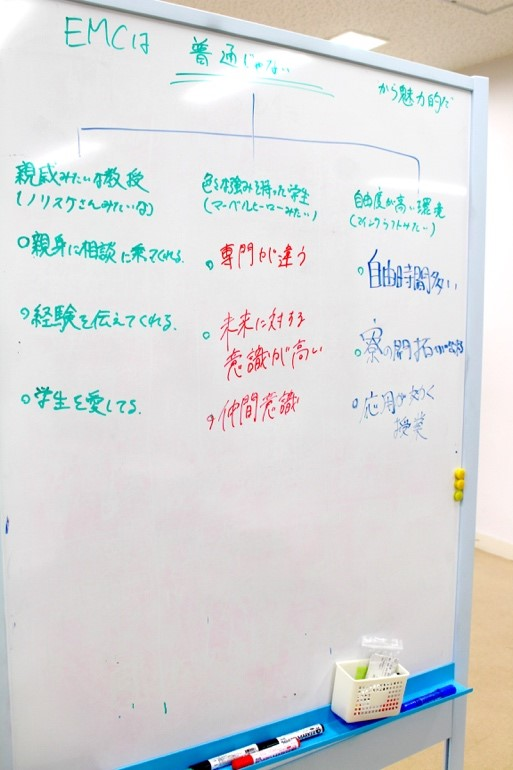 EMCは 普通じゃない から魅力的だ
親戚みたいな教授
(ノリスケさんみたいな)
親身に相談に乗ってくれる.
経験を伝えてくれる.
学生を愛してる.
色々な強みを持った学生
(マーベルヒーローみたい)
専門が違う
未来に対する
意識が高い
仲間意識
自由度が高い環境
(マインクラフトみたい)
自由時間多い
寮の開拓ができる
応用が効く
授業